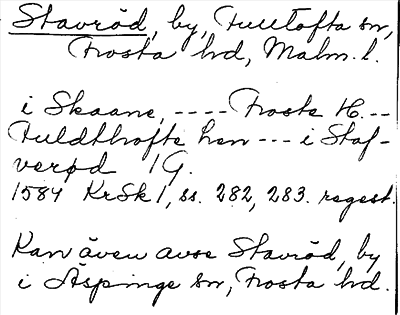 Stavröd, by, Fulltofta sn,
Frosta hd, Malm. l.
i Skaane, ---- Froste H. --
Fuldthofte Sen --- i Staf-
verød 1 G.
1584 KrSk 1, ss. 282, 283. regest.
Kan även avse Stavröd, by
i Äspinge sn, Frosta hd.